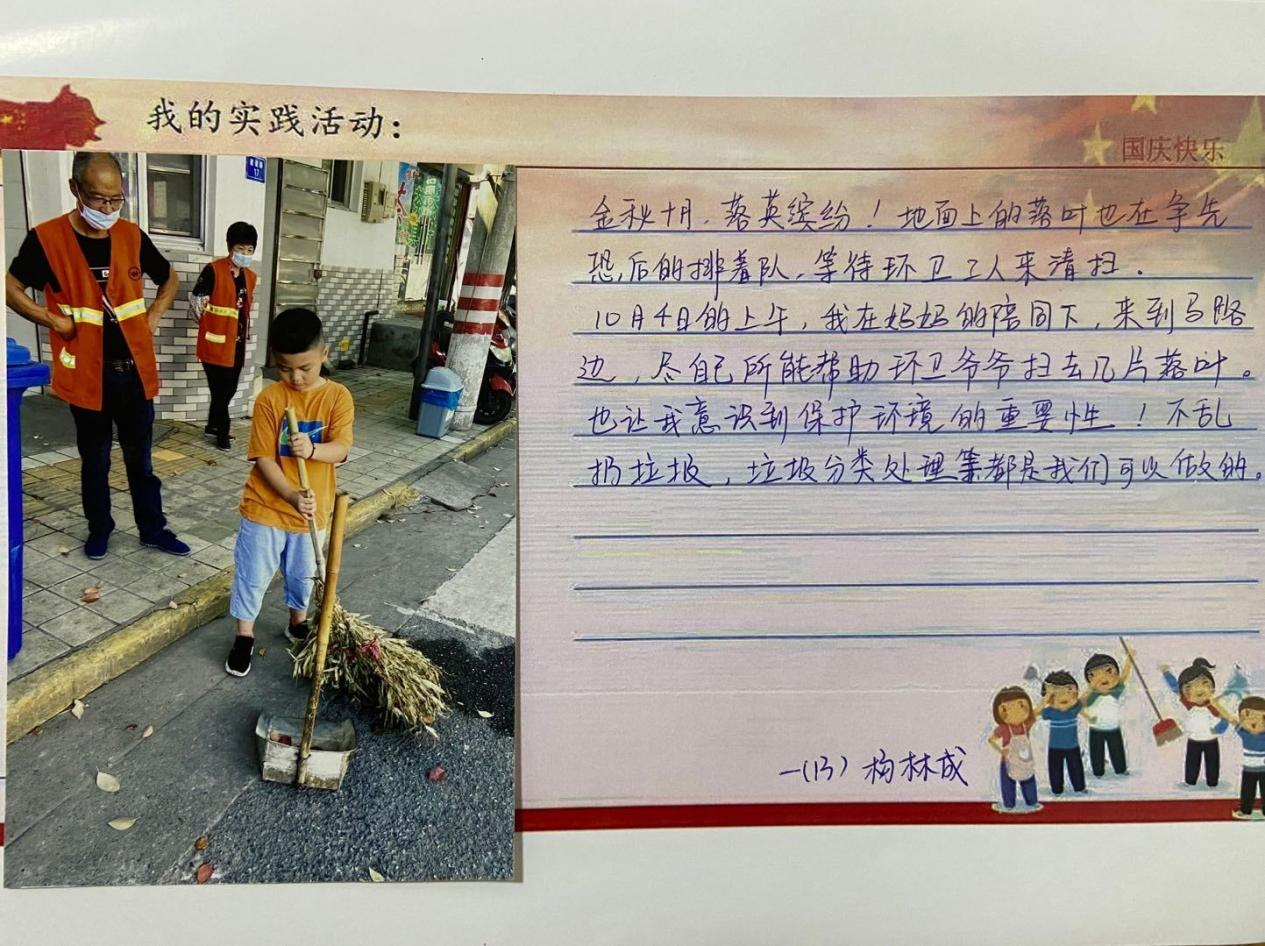 我的实践活动：
国庆快乐
金秋十月．落英缤纷！地面上的落叶也在争先
恐后的排着队，等待环卫工人来清扫．
10月4日的上午，我在妈妈的陪同下，来到马路
边，尽自己所能帮助环卫爷爷扫去几片落叶。
也让我意识到保护环境的重要性！不乱
扔垃圾，垃圾分类处理等都是我们可以做的。
一（13）杨林成
17